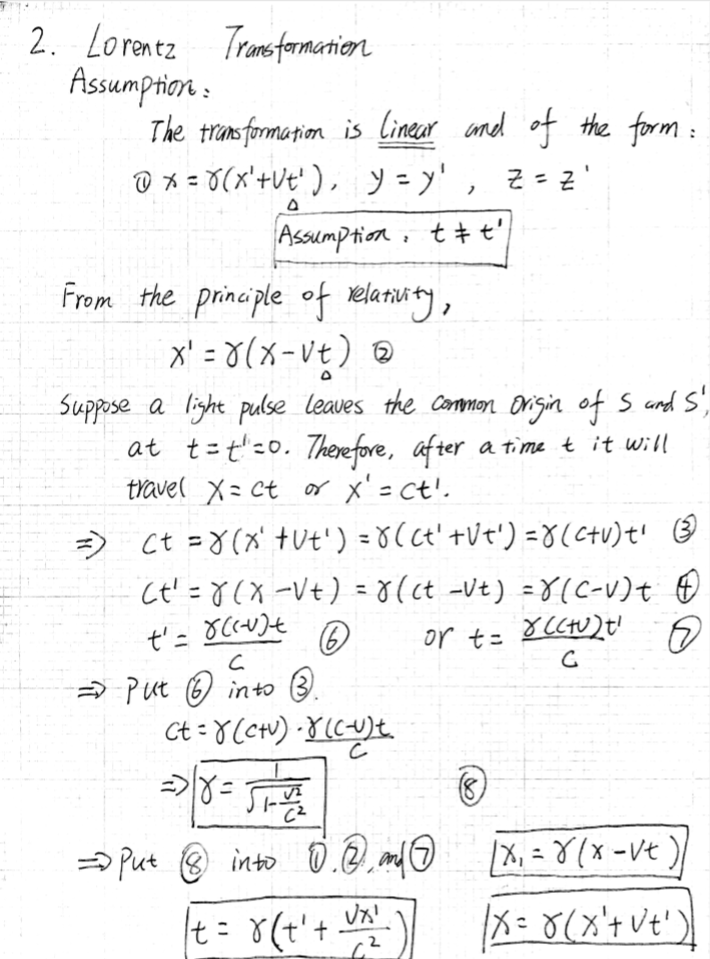 2. Lorentz Transformation
Assumption:
The transformation is linear and of the form:
① x = γ(x'+Vt'), y = y', z = z'
△
Assumption: t ≠ t'
From the principle of relativity,
x' = γ(x-Vt) ②
△
Suppose a light pulse leaves the common origin of S and S',
at t=t'=0. Therefore, after a time t it will
travel x=ct or x'=ct'.
⇒ ct = γ(x'+Vt') = γ(ct'+Vt') = γ(c+V)t' ③
ct' = γ(x-Vt) = γ(ct-Vt) = γ(c-V)t ④
t' = γ(c-V)t / c ⑥ or t = γ(c+V)t' / c ⑦
⇒ Put ⑥ into ③.
ct = γ(c+V)·γ(c-V)t / c
⇒ γ = 1 / √(1-V²/c²) ⑧
⇒ Put ⑧ into ①, ②, and ⑦ x₁ = γ(x-Vt)
t = γ(t' + Vx'/c²) x = γ(x'+Vt')